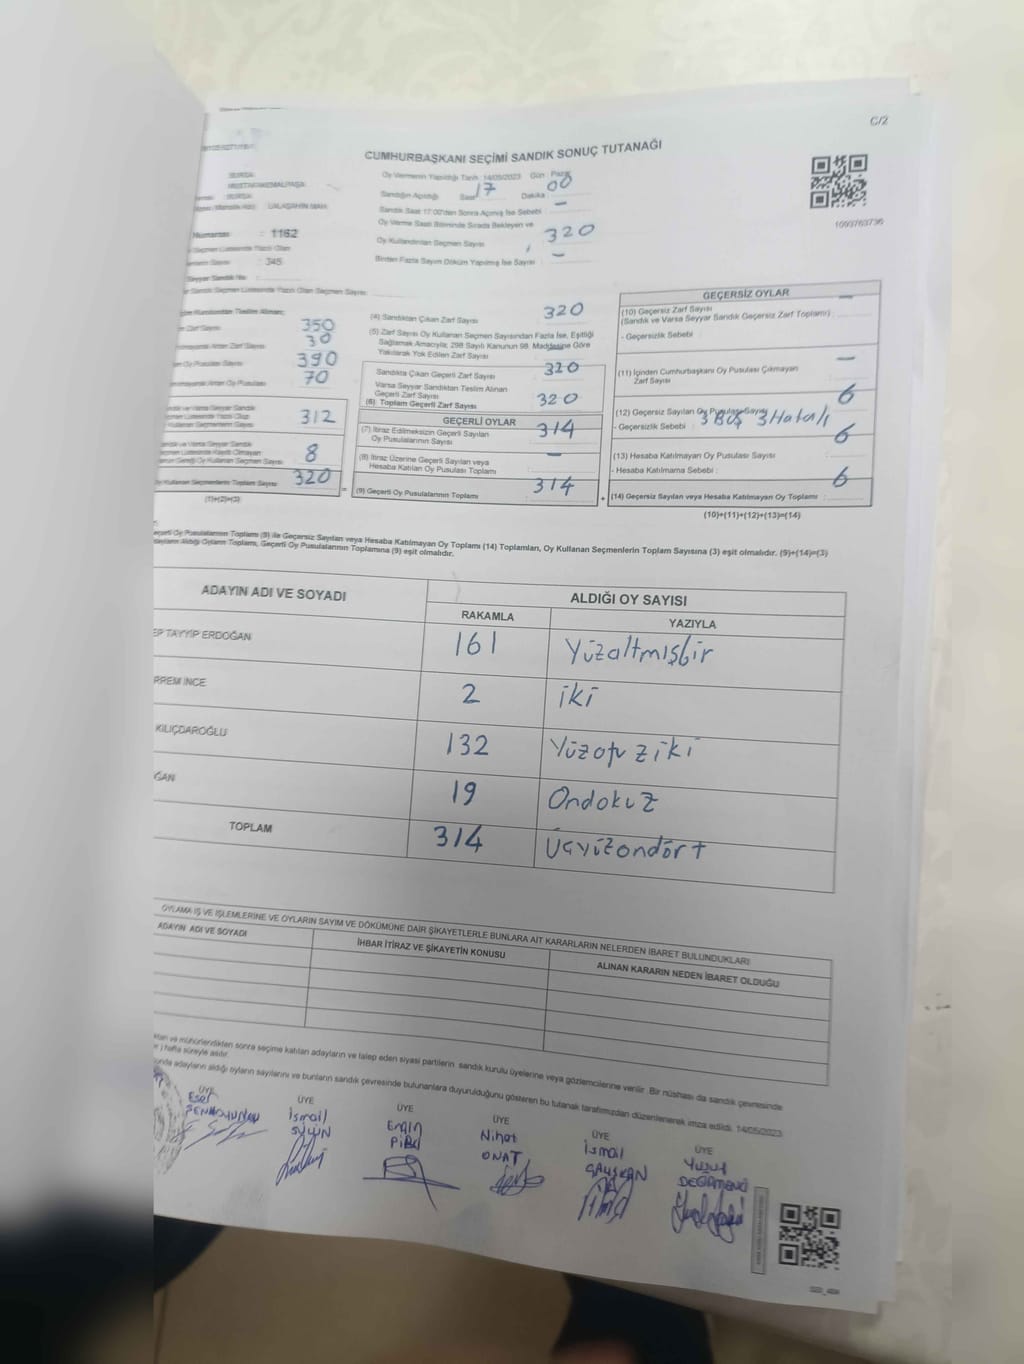 C/2
CUMHURBAŞKANI SEÇİMİ SANDIK SONUÇ TUTANAĞI
1093763736
BURSA
MUSTAFAKEMALPAŞA
BURSA
LALAŞAHİN MAH.
Numarası : 1162
: 345
Oy Vermenin Yapıldığı Tarih :14/05/2023 Gün : Pazar
Sandığın Açıldığı Saat 17 Dakika : 00
Sandık Saat 17:00'den Sonra Açılmış İse Sebebi : —
Oy Verme Saati Bitiminde Sırada Bekleyen ve
Oy Kullandırılan Seçmen Sayısı : 320
Birden Fazla Sayım Döküm Yapılmış İse Sayısı : —
Seyyar Sandık No :
Sandık Seçmen Listesinde Yazılı Olan Seçmen Sayısı :
350
30
390
70
312
8
320
(1)+(2)=(3)
(4) Sandıktan Çıkan Zarf Sayısı 320
(5) Zarf Sayısı Oy Kullanan Seçmen Sayısından Fazla İse, Eşitliği
Sağlamak Amacıyla; 298 Sayılı Kanunun 98. Maddesine Göre
Yakılarak Yok Edilen Zarf Sayısı —
Sandıkta Çıkan Geçerli Zarf Sayısı 320
Varsa Seyyar Sandıktan Teslim Alınan
Geçerli Zarf Sayısı
(6) Toplam Geçerli Zarf Sayısı 320
GEÇERLİ OYLAR
(7) İtiraz Edilmeksizin Geçerli Sayılan
Oy Pusulalarının Sayısı 314
(8) İtiraz Üzerine Geçerli Sayılan veya
Hesaba Katılan Oy Pusulası Toplamı —
(9) Geçerli Oy Pusulalarının Toplamı 314
GEÇERSİZ OYLAR
(10) Geçersiz Zarf Sayısı —
(Sandık ve Varsa Seyyar Sandık Geçersiz Zarf Toplamı) :
- Geçersizlik Sebebi :
(11) İçinden Cumhurbaşkanı Oy Pusulası Çıkmayan
Zarf Sayısı —
(12) Geçersiz Sayılan Oy Pusulası Sayısı 6
- Geçersizlik Sebebi : 3 Boş 3 Hatalı
(13) Hesaba Katılmayan Oy Pusulası Sayısı : 6
- Hesaba Katılmama Sebebi :
(14) Geçersiz Sayılan veya Hesaba Katılmayan Oy Toplamı : 6
(10)+(11)+(12)+(13)=(14)
Oy Pusulalarının Toplamı (9) ile Geçersiz Sayılan veya Hesaba Katılmayan Oy Toplamı (14) Toplamları, Oy Kullanan Seçmenlerin Toplam Sayısına (3) eşit olmalıdır. (9)+(14)=(3)
Aldığı Oyların Toplamı, Geçerli Oy Pusulalarının Toplamına (9) eşit olmalıdır.
ADAYIN ADI VE SOYADI ALDIĞI OY SAYISI
RAKAMLA YAZIYLA
EP TAYYİP ERDOĞAN 161 Yüzaltmışbir
RREM İNCE 2 iki
KILIÇDAROĞLU 132 Yüzotuziki
ĞAN 19 Ondokuz
TOPLAM 314 Üçyüzondört
OYLAMA İŞ VE İŞLEMLERİNE VE OYLARIN SAYIM VE DÖKÜMÜNE DAİR ŞİKAYETLERLE BUNLARA AİT KARARLARIN NELERDEN İBARET BULUNDUKLARI
ADAYIN ADI VE SOYADI İHBAR İTİRAZ VE ŞİKAYETİN KONUSU ALINAN KARARIN NEDEN İBARET OLDUĞU
ve mühürlendikten sonra seçime katılan adayların ve talep eden siyasi partilerin sandık kurulu üyelerine veya gözlemcilerine verilir. Bir nüshası da sandık çevresinde
hafta süreyle asılır.
adayların aldığı oyların sayılarını ve bunların sandık çevresinde bulunanlara duyurulduğunu gösteren bu tutanak tarafımızdan düzenlenerek imza edildi. 14/05/2023
ÜYE ÜYE ÜYE ÜYE ÜYE ÜYE
İsmail Engin Nihat İsmail Yusuf
ONAT ÇALIŞKAN DEĞİRMENCİ